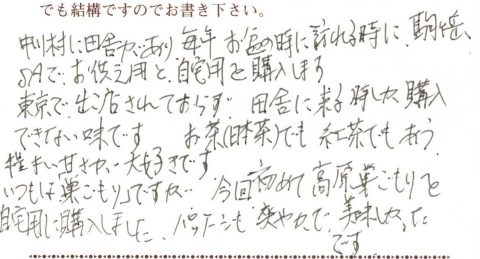 でも結構ですのでお書き下さい。
中川村に田舎があり 毎年 お盆の時に訪れる時に、駒ヶ岳
SAで、お供え用と、自宅用と購入します
東京で、出店されておらず、田舎に来る時しか購入
できない味です お茶(日本茶)でも 紅茶でもあう
程よい甘さが、大好きです
いつもは「巣ごもり」ですが、今回 初めて 高原巣ごもりを
自宅用に購入しました、パッケージも 爽やかで 美味しかった
です